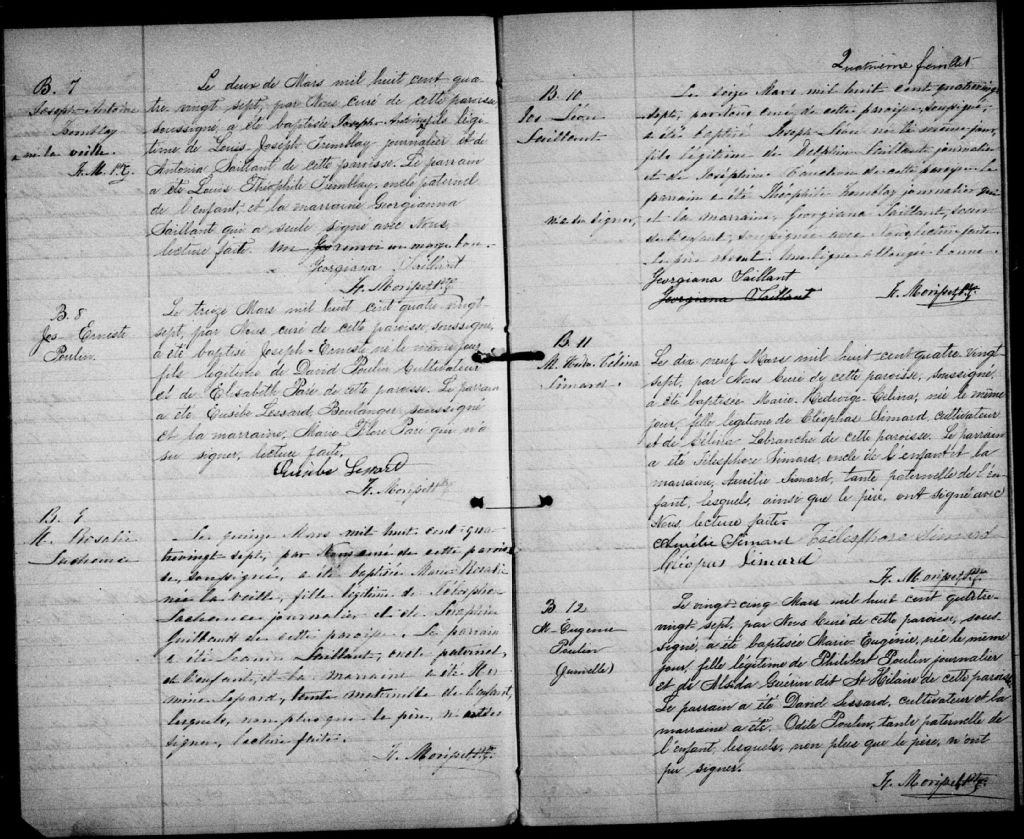 B. 7
Joseph-Antoine
Tremblay
né la veille
F. M. Ptre
Le deux de Mars mil huit cent qua
tre vingt sept, par Nous curé de cette paroisse
soussigné, a été baptisé Joseph-Antoine légi
time de Louis Joseph Tremblay journalier et de
Antonia Saillant de cette paroisse. Le parrain
a été Louis Théophile Tremblay, oncle paternel
de l'enfant, et la marraine Georgianna
Saillant qui a seule signé avec Nous,
lecture faite. Un renvoi en marge bon.
Georgiana Saillant
F. Morisset Ptre
B. 8
Jos-Erneste
Poulin.
Le treize Mars mil huit cent quatre vingt
sept, par Nous curé de cette paroisse, soussigné,
a été baptisé Joseph-Erneste né le même jour
fils légitime de David Poulin Cultivateur
et de Elisabeth Paré de cette paroisse. Le parrain
a été Eusèbe Lessard, Boulanger soussigné
et la marraine, Marie Flore Paré qui n'a
su signer, lecture faite,
Eusèbe Lessard
F. Morisset Ptre
B. 9
M. Rosalie
Lachance
Le quinze Mars mil huit cent qua
trevingt sept, par Nous curé de cette parois
se, soussigné, a été baptisée Marie Rosalie
née la veille, fille légitime de
Lachance journalier et de Joséphine
Guilbault de cette paroisse. Le parrain
a été Saillant, oncle paternel
de l'enfant, et la marraine a été Her
mine Lessard, tante maternelle de l'enfant,
lesquels, non plus que le père, n'ont su
signer, lecture faite.
F. Morisset Ptre
Quatrième feuillet
B. 10
Jos Léon
Saillant
Le seize Mars mil huit cent quatrevingt
sept, par Nous curé de cette paroisse, soussigné,
a été baptisé Joseph-Léon né le même jour,
fils légitime de Delphin Saillant journalier
et de Joséphine de cette paroisse. Le
parrain a été Théophile Tremblay journalier qui
n'a su signer,
et la marraine, Georgiana Saillant, soeur
de l'enfant, soussignée avec Nous, lecture faite.
Le père absent. Une ligne allongée bonne.
Georgiana Saillant
Georgiana Saillant
F. Morisset Ptre
B. 11
M. Hedw. Célina
Simard.
Le dix neuf Mars mil huit cent quatre vingt
sept, par Nous Curé de cette paroisse, soussigné,
a été baptisée Marie-Hedwige-Célina, née le même
jour, fille légitime de Cléophas Simard, cultivateur
et de Célina Labranche de cette paroisse. Le parrain
a été Télesphore Simard, oncle de l'enfant et la
marraine, Aurélie Simard, tante paternelle de l'en-
fant, lesquels, ainsi que le père, ont signé avec
Nous, lecture faite.
Aurélie Simard Télesphore Simard
Cléopas Simard
F. Morisset Ptre
B. 12
M-Eugenie
Poulin
(Jumelle)
Le vingt-cinq Mars mil huit cent quatre-
vingt sept, par Nous Curé de cette paroisse, sous-
signé, a été baptisée Marie Eugénie, née le même
jour, fille légitime de Philibert Poulin journalier
et de Alvida Guérin dit St Hilaire de cette paroisse.
Le parrain a été David Lessard, cultivateur et la
marraine a été Odile Poulin, tante paternelle de
l'enfant, lesquels, non plus que le père, n'ont
pu signer.
F. Morisset Ptre